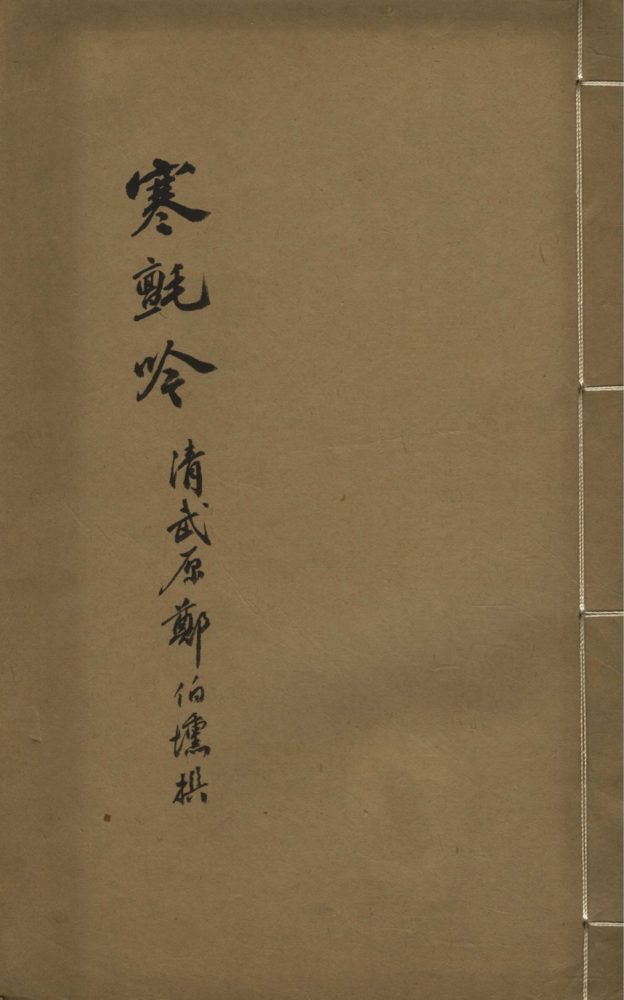 寒氈吟
清武原鄭伯壎撰